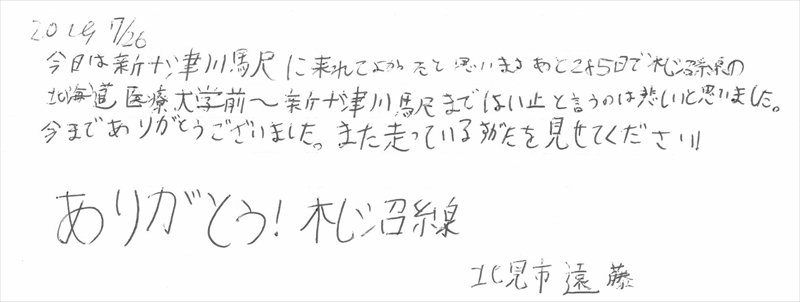 2019 7/26
今日は新十津川馬尺に来れてよかったと思いますあと285日で札沼線の
北海道医療大学前〜新十津川馬尺まではい止と言うのは悲しいと思いました。
今までありがとうございました。また走っているすがたを見せてください!!
ありがとう!札沼線
北見市 遠藤